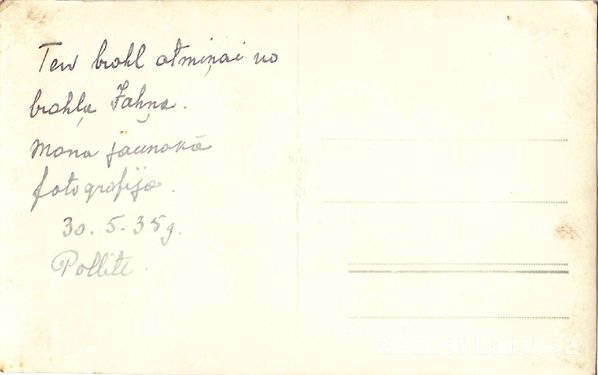 Tew brahl atmiņai no
brahļa Jahņa.
Mana jaunakā
fotografija.
30.5.35g.